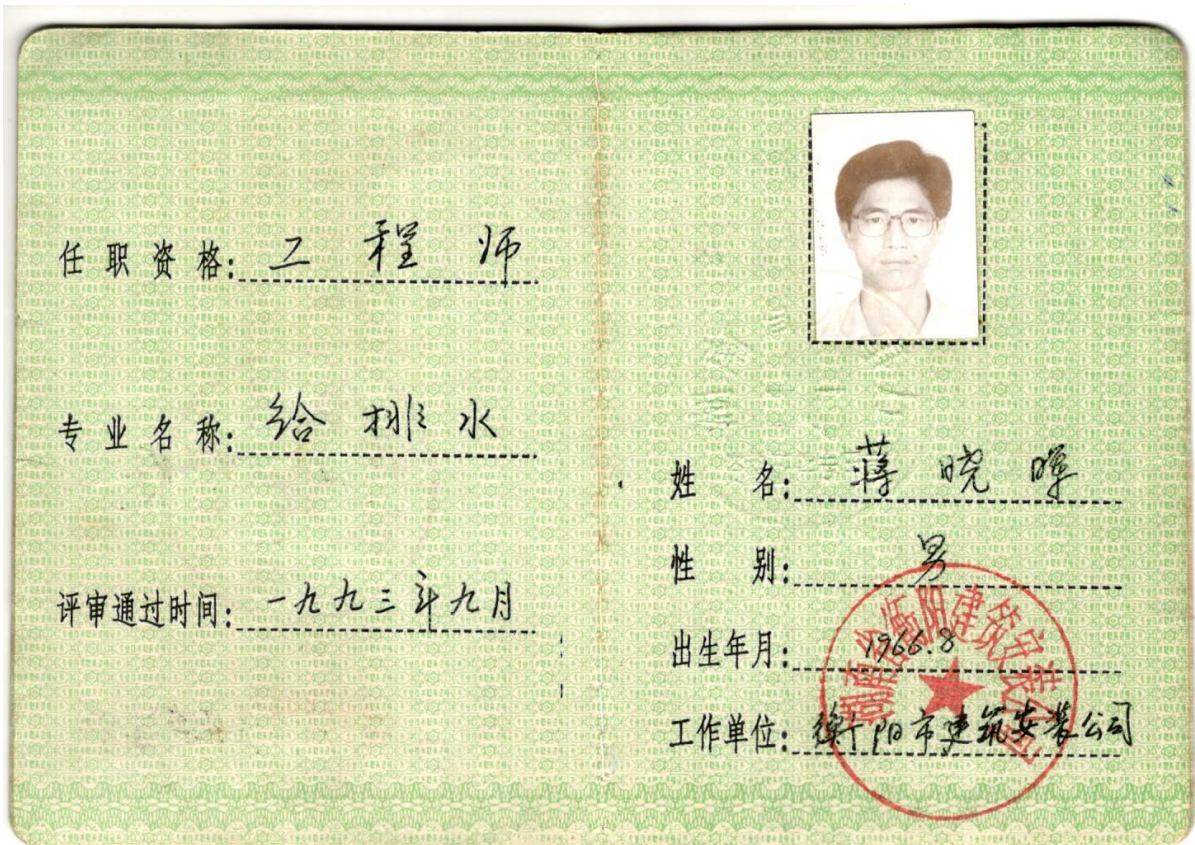 任职资格：工程师
专业名称：给排水
评审通过时间：一九九三年九月
姓名：蒋晓晖
性别：男
出生年月：1966.8
工作单位：衡阳市建筑安装公司
湖南省衡阳建筑安装公司